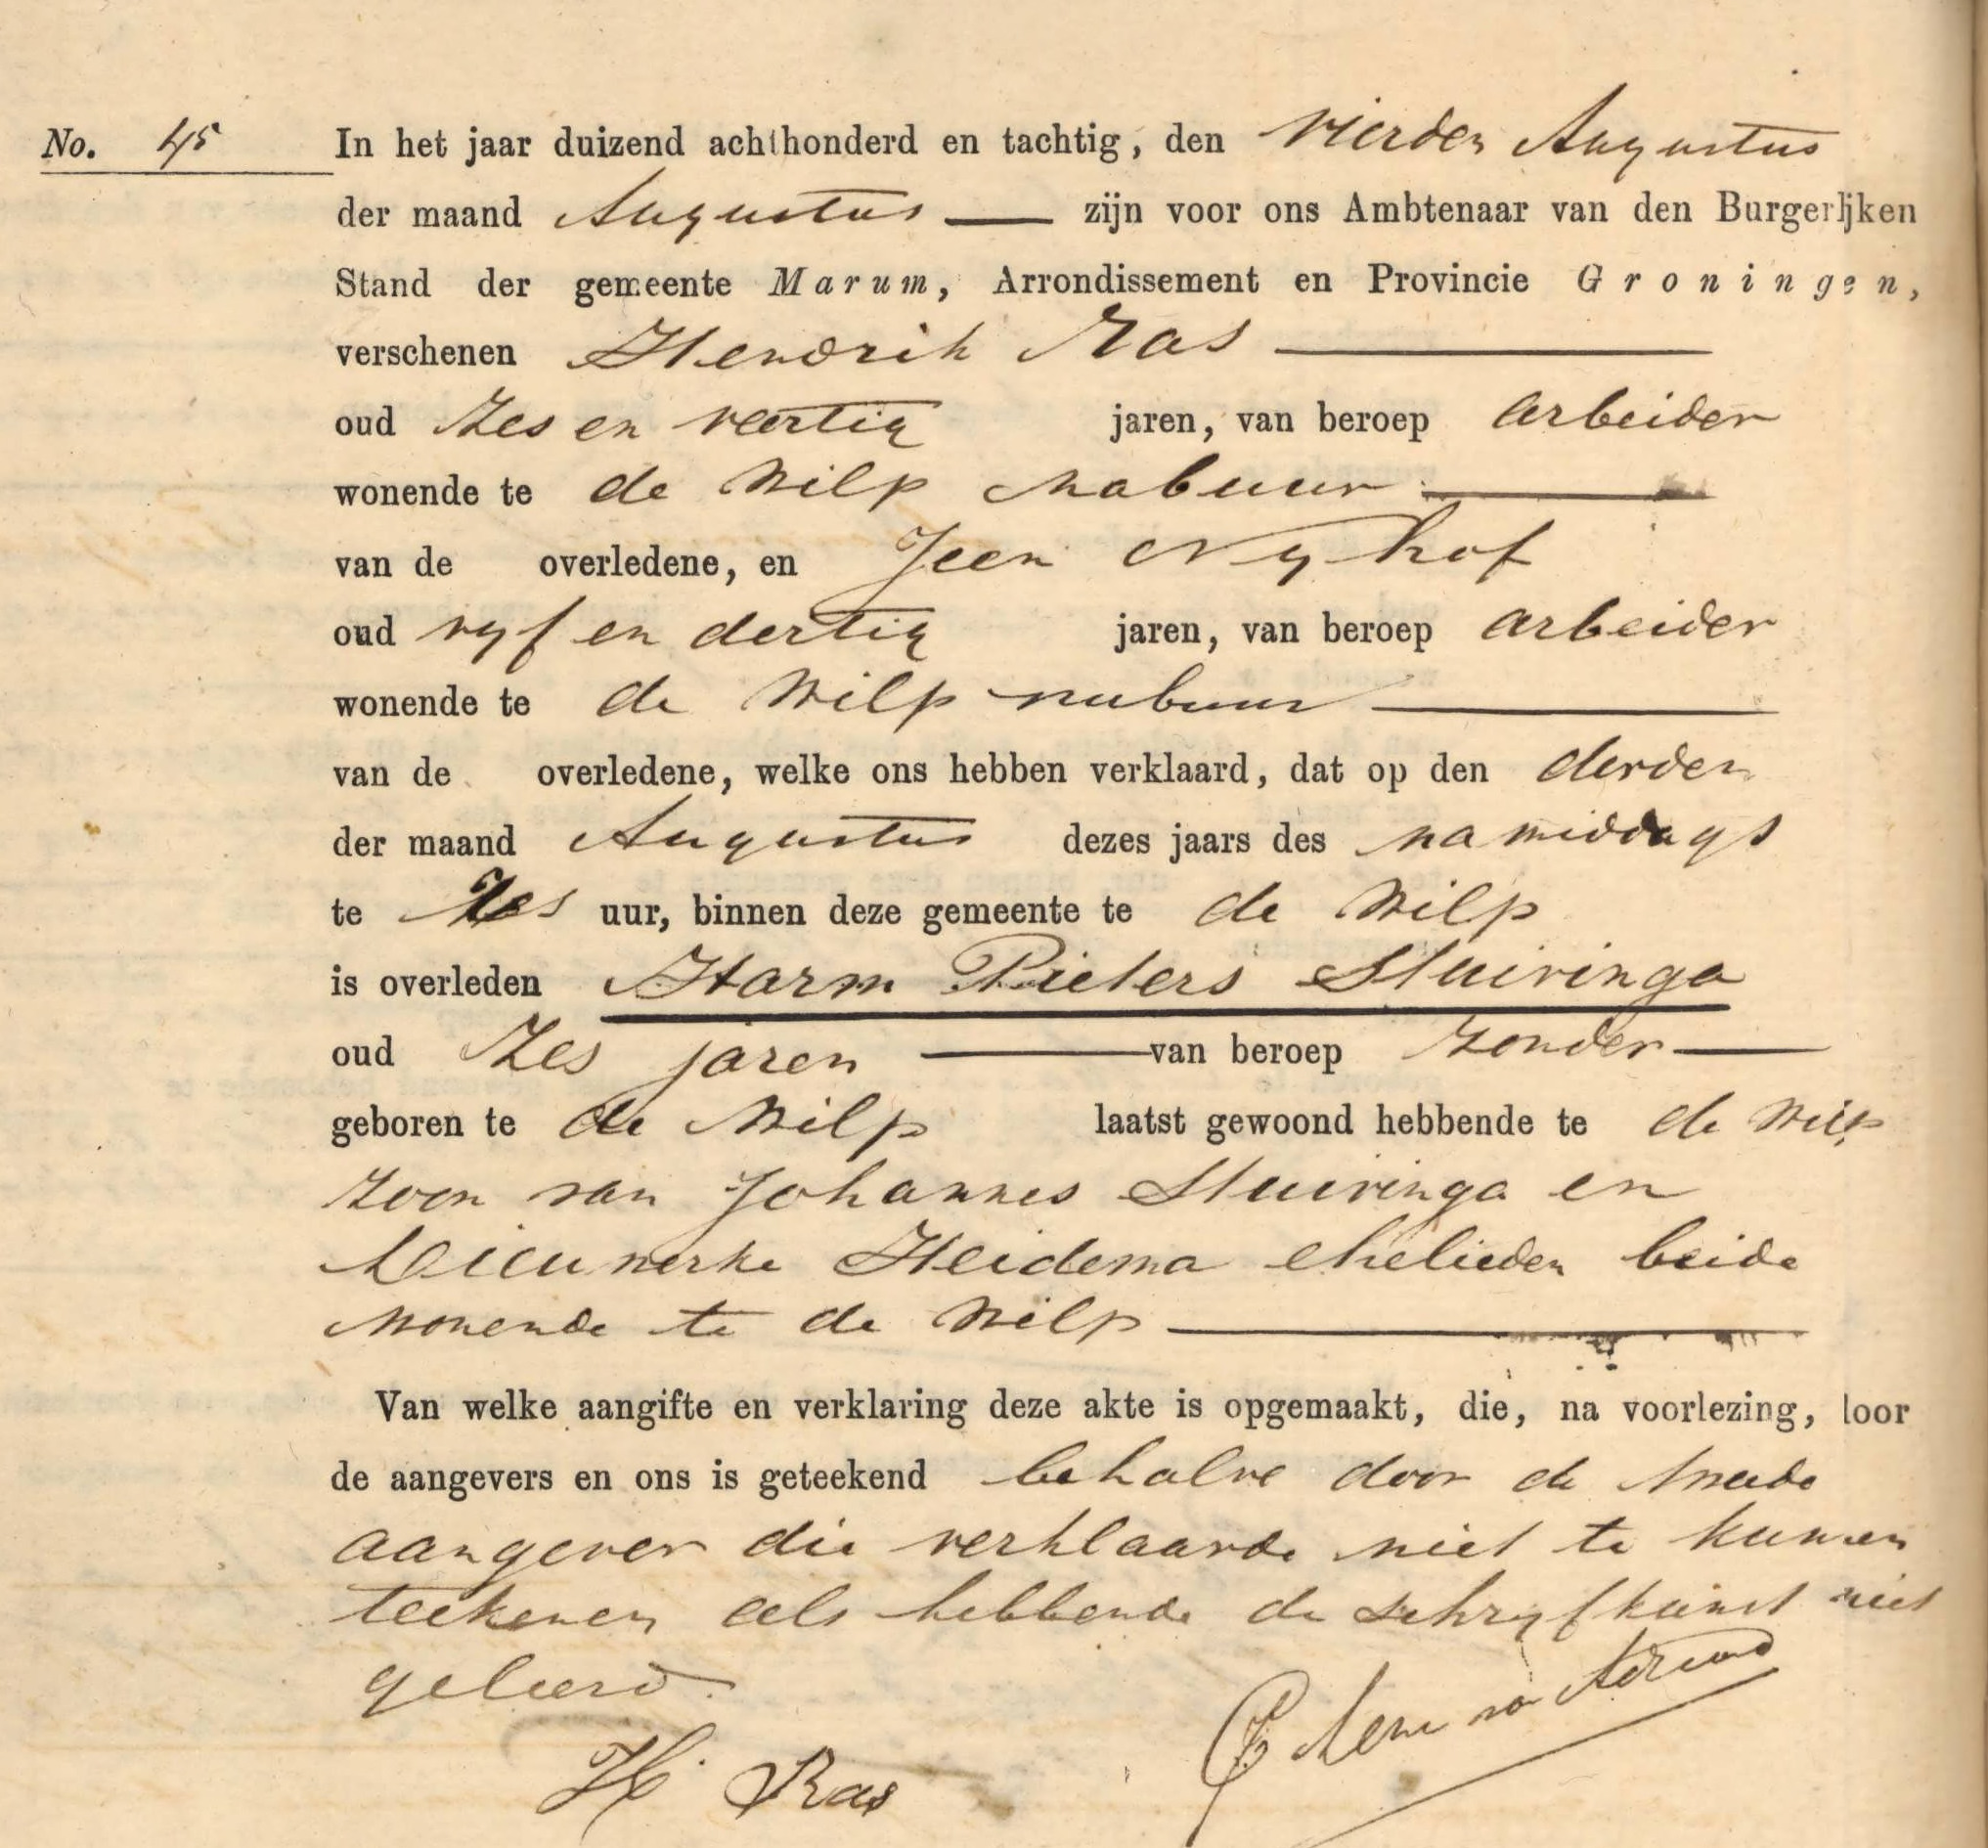 No. 45 In het jaar duizend achthonderd en tachtig, den vierden Augustus
der maand Augustus — zijn voor ons Ambtenaar van den Burgerlijken
Stand der gemeente Marum, Arrondissement en Provincie Groningen,
verschenen Hendrik Ras —
oud Zes en veertig jaren, van beroep arbeider
wonende te de Wilp nabuur —
van de overledene, en Jeen Nyhof
oud vyf en dertig jaren, van beroep arbeider
wonende te de Wilp nabuur —
van de overledene, welke ons hebben verklaard, dat op den derden
der maand Augustus dezes jaars des namiddags
te Zes uur, binnen deze gemeente te de Wilp
is overleden Harm Pieters Sluiringa
oud Zes jaren — van beroep zonder —
geboren te de Wilp laatst gewoond hebbende te de Wilp
zoon van Johannes Sluiringa en
Dieuwerke Heidema ehelieden beide
wonende te de Wilp —
Van welke aangifte en verklaring deze akte is opgemaakt, die, na voorlezing, door
de aangevers en ons is geteekend behalve door de tweede
aangever die verklaarde niet te kunnen
teekenen als hebbende de schryfkunst niet
geleerd.
H. Ras